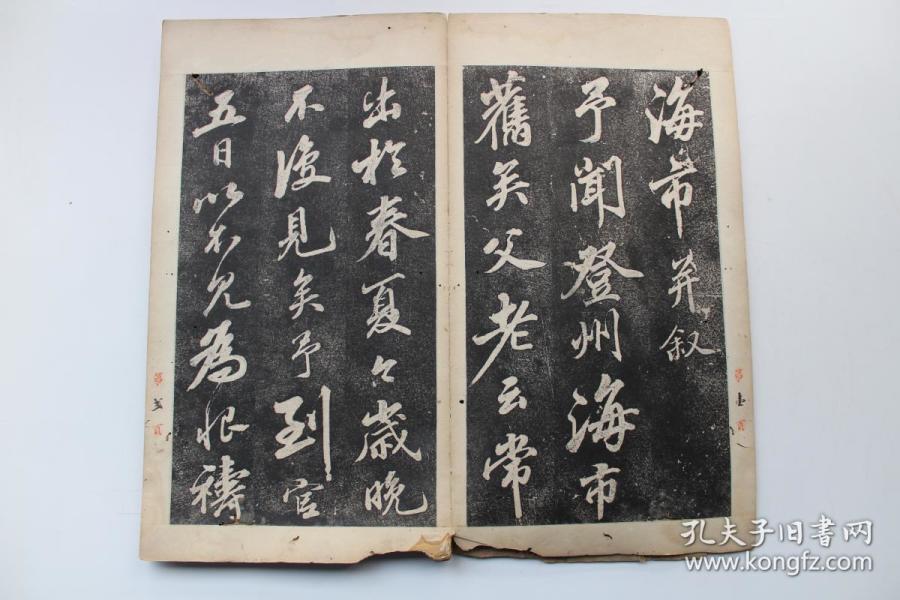 海市并叙
予聞登州海市
舊矣父老云常
第壹頁
出於春夏今歲晚
不復見矣予到官
五日以不見為恨禱
孔夫子旧書网
www.kongfz.com